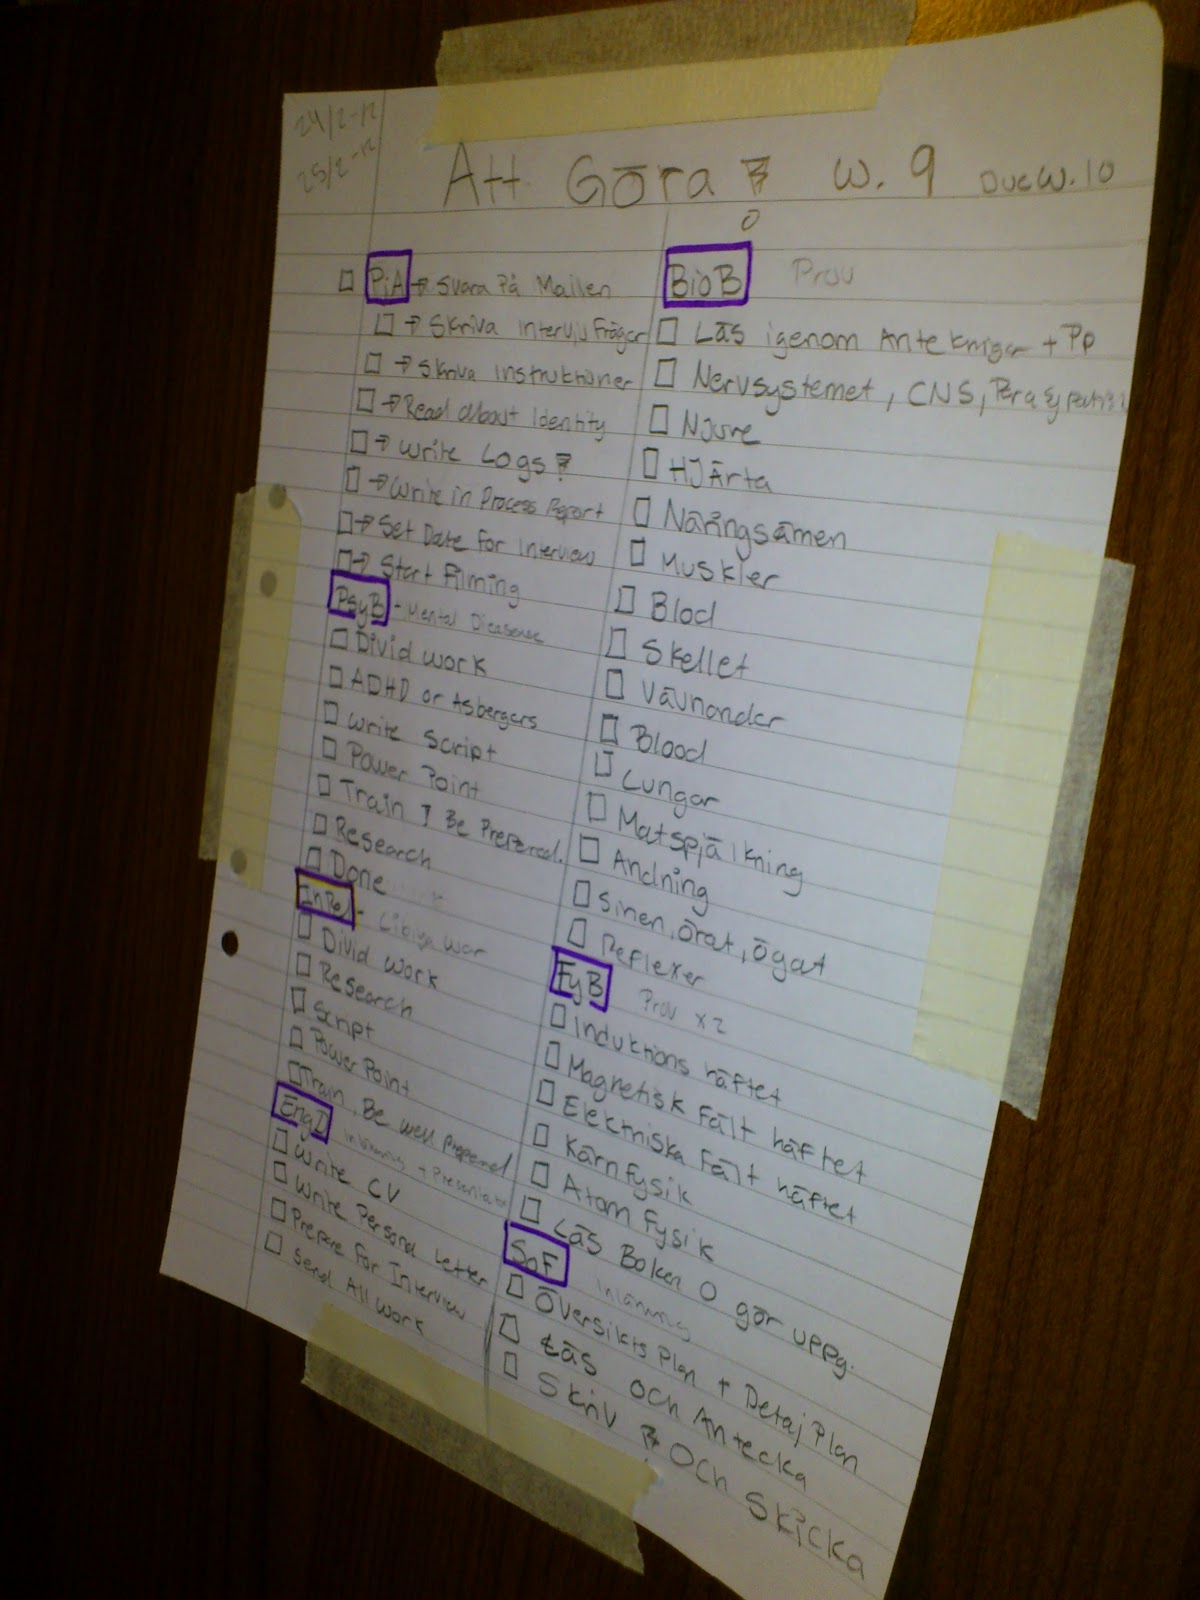 24/2-12
25/2-12
Att Göra! w. 9 Due W.10
PiA → Svara På Mailen
→ Skriva Intervju Frågor
→ Skriva Instruktioner
→ Read about Identity
→ Write Logs!
→ Write in Process Report
→ Set Date For Interview
→ Start Filming
PsyB - Mental Diceasese
Divid work
ADHD or Asbergers
Write Script
Power Point
Train ! Be Prepered.
Research
Done
InRel - Libiya War
Divid Work
Research
Script
Power Point
Train, Be well prepered
EngD Inlämning + Presentation
Write CV
Write Personal Letter
Prepare For Interview
Send All Work
BioB Prov
Läs igenom Antekningar + Pp
Nervsystemet, CNS, Para
Njure
HJärta
Näringsämen
Muskler
Blod
Skellet
Vävnander
Blood
Lungor
Matspjälkning
Andning
Sinen, Örat, Ögat
Reflexer
FyB Prov x2
Induktions häftet
Magnetisk Fält häftet
Elektriska Fält häftet
Kärnfysik
Atom Fysik
Läs Boken O gör uppg.
SoF Inlämning
Översikts Plan + Detaj Plan
Läs och Antecka
Skriv! Och Skicka